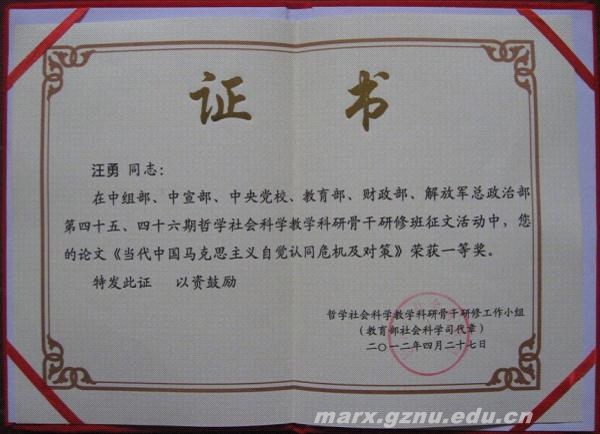 证 书
汪勇 同志：
在中组部、中宣部、中央党校、教育部、财政部、解放军总政治部
第四十五、四十六期哲学社会科学教学科研骨干研修班征文活动中，您
的论文《当代中国马克思主义自觉认同危机及对策》荣获一等奖。
特发此证 以资鼓励
哲学社会科学教学科研骨干研修工作小组
（教育部社会科学司代章）
二〇一二年四月二十七日
marx.gznu.edu.cn